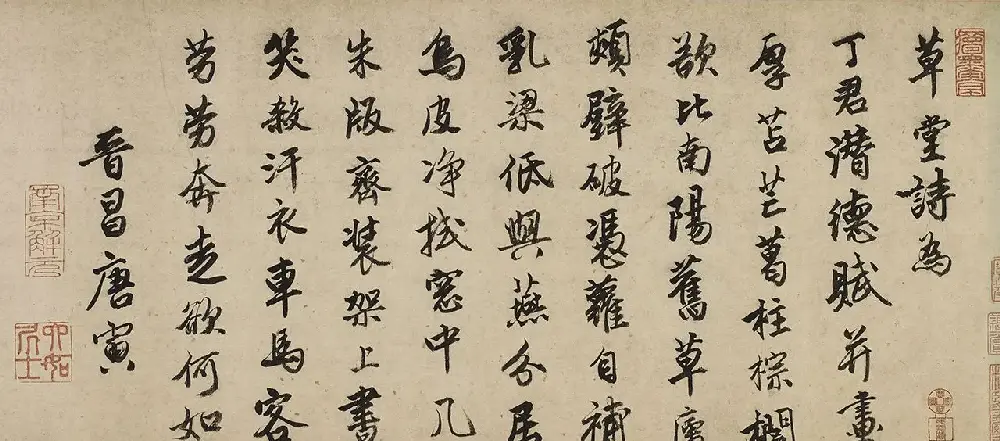 草堂詩為
丁君潛德賦并畫
厚苫芒葛柱棕櫚
欲比南陽舊草廬
頹壁破憑蘿自補
乳梁低與燕分居
烏皮净拭窓中几
朱版齊裝架上書
笑殺汗衣車馬客
劳劳奔走欲何如
晋昌唐寅
南京解元
六如居士